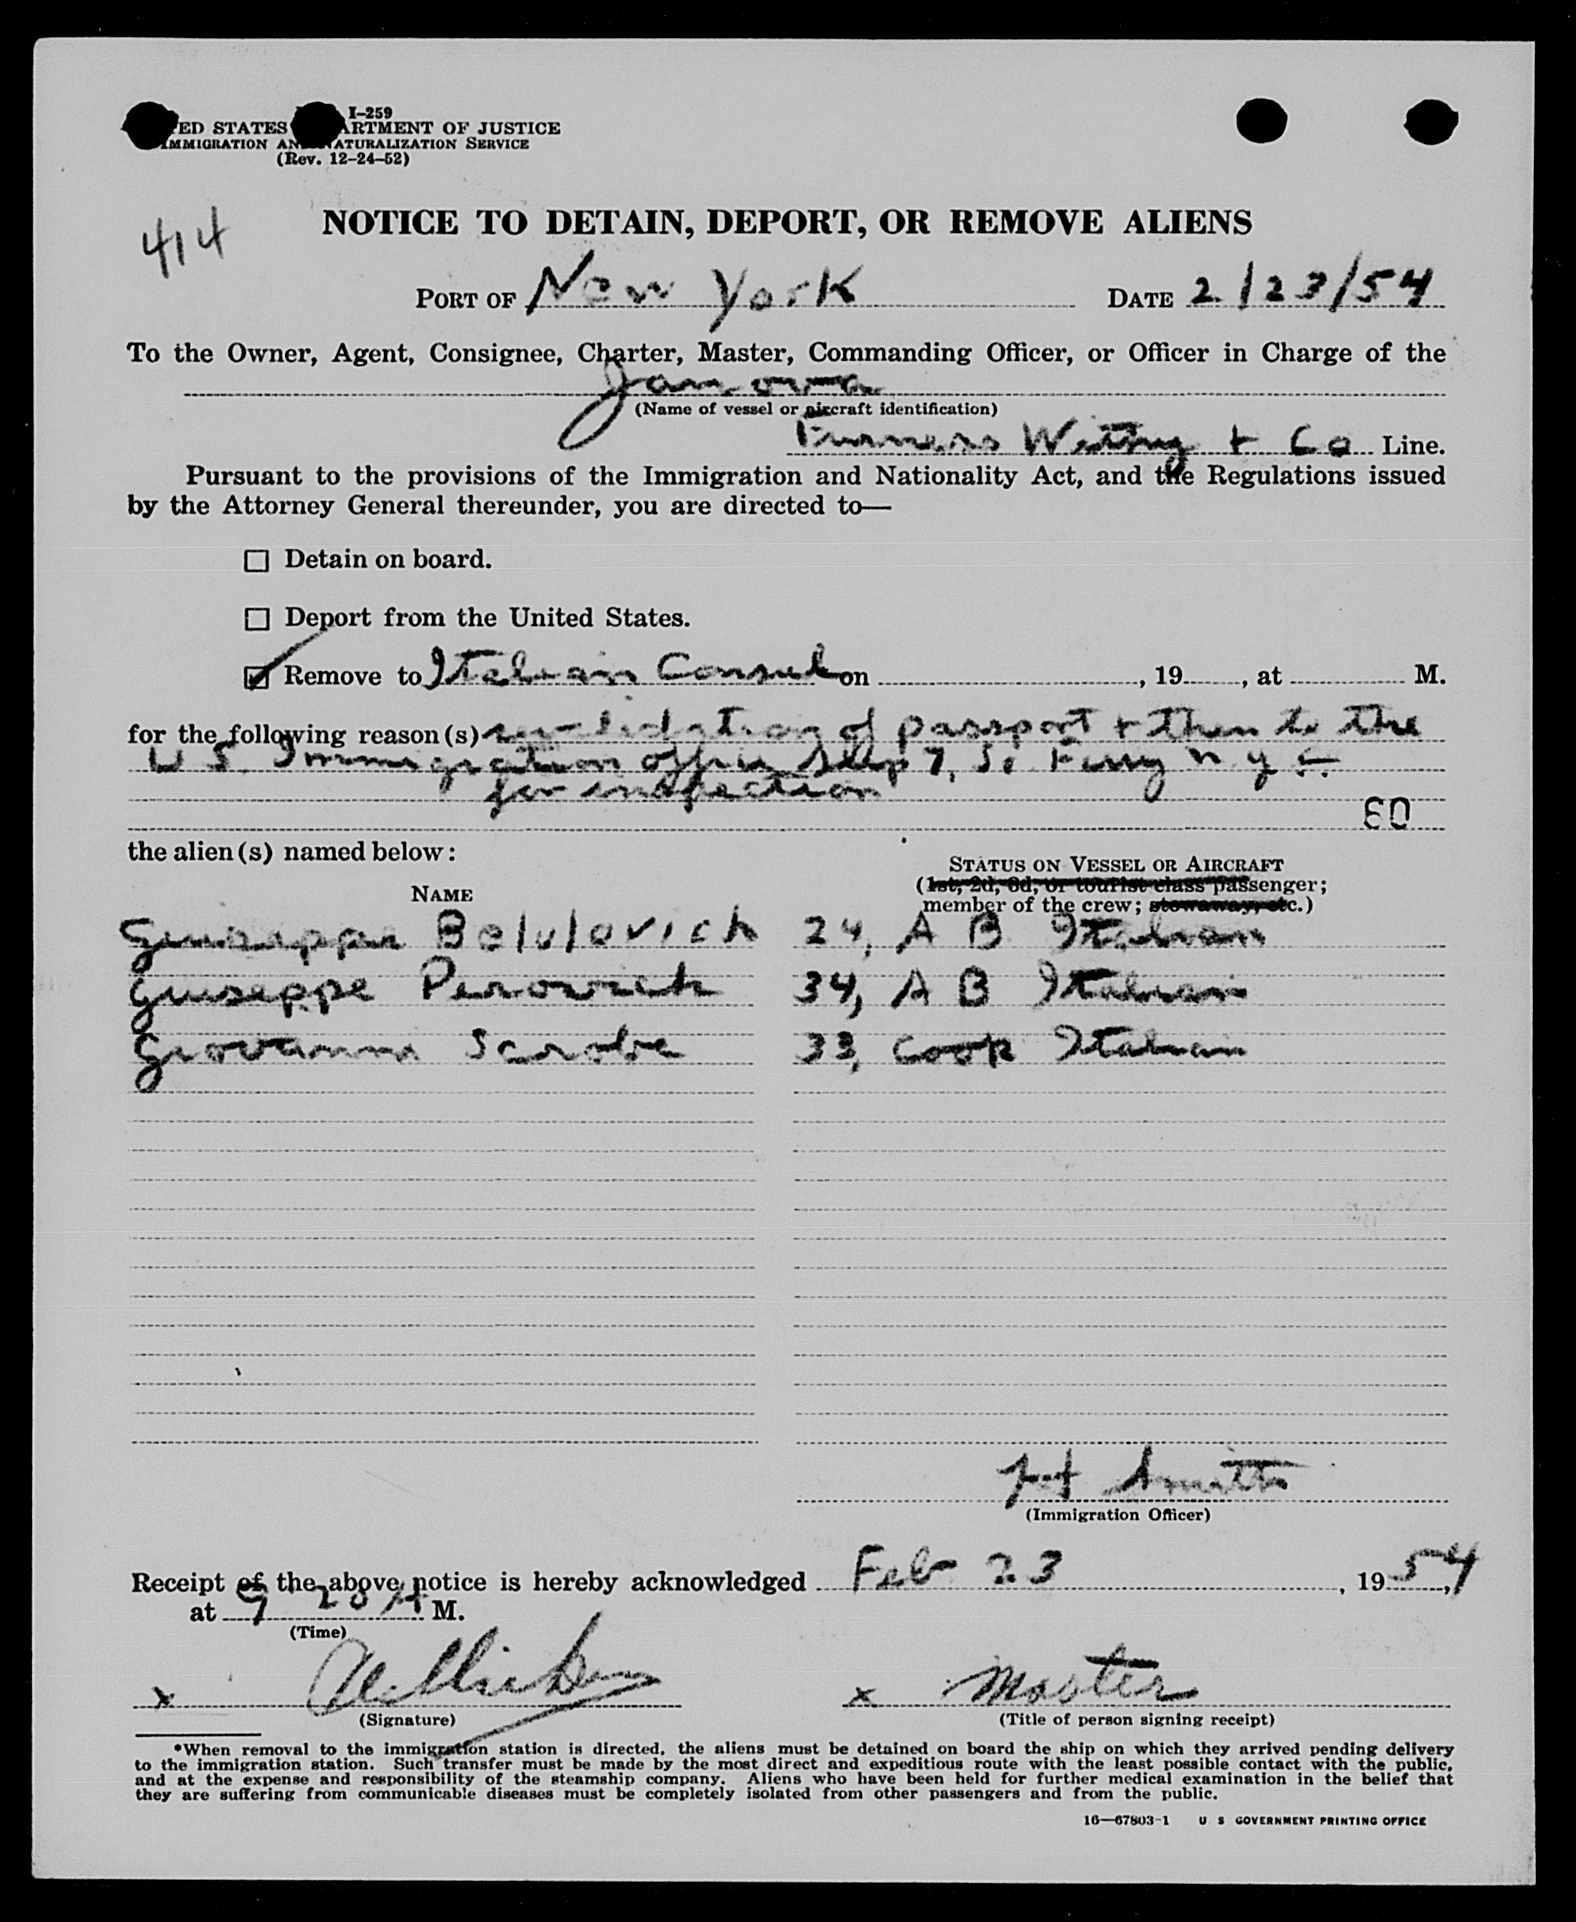 I-259
ED STATES RTMENT OF JUSTICE
IMMIGRATION AN ATURALIZATION SERVICE
(Rev. 12-24-52)
414
NOTICE TO DETAIN, DEPORT, OR REMOVE ALIENS
PORT OF New York DATE 2/23/54
To the Owner, Agent, Consignee, Charter, Master, Commanding Officer, or Officer in Charge of the
Janova
(Name of vessel or aircraft identification)
Furness Withy & Co Line.
Pursuant to the provisions of the Immigration and Nationality Act, and the Regulations issued
by the Attorney General thereunder, you are directed to—
Detain on board.
Deport from the United States.
Remove to Italian Consul on , 19 , at M.
for the following reason(s) revalidation of passport + then to the
U S. Immigration office Slip 7, So Ferry N Y C.
for inspection
the alien(s) named below:
STATUS ON VESSEL OR AIRCRAFT
NAME (1st, 2d, 3d, or tourist class passenger;
member of the crew; stowaway, etc.)
Giuseppe Belulovich 24, A B Italian
Giuseppe Perovich 34, A B Italian
Giovanni Scrobe 33, Cook Italian
Smith
(Immigration Officer)
Receipt of the above notice is hereby acknowledged Feb 23, 1954,
at 9 20 A M.
(Time)
x x Master
(Signature) (Title of person signing receipt)
*When removal to the immigration station is directed, the aliens must be detained on board the ship on which they arrived pending delivery
to the immigration station. Such transfer must be made by the most direct and expeditious route with the least possible contact with the public,
and at the expense and responsibility of the steamship company. Aliens who have been held for further medical examination in the belief that
they are suffering from communicable diseases must be completely isolated from other passengers and from the public.
16—67803-1 U S GOVERNMENT PRINTING OFFICE